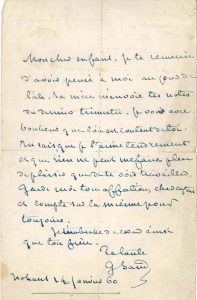 Mon cher enfant, je te remercie
d'avoir pensé à moi au fond de
l'âme. Ta mère m'envoie tes notes
du dernier trimestre. Je vois avec
bonheur que l'on est content de toi.
Tu sais que je t'aime tendrement
et que rien ne peut me faire plus
de plaisir que de te voir travailler.
Garde moi ton affection, cher
et compte sur la mienne pour
toujours.
Je t'embrasse
que ton frère.
Ta tante
G Sand
Nohant 14 janvier 60